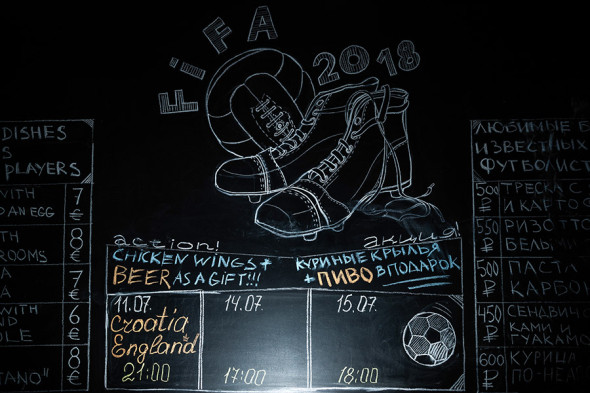 FIFA 2018
DISHES
S
PLAYERS
WITH
D AN EGG
7
€
TH
ROOMS
8
€
A
A
7
€
WITH
ND
OLE
6
€
TANO"
8
€
action!
CHICKEN WINGS +
BEER AS A GIFT!!!
акция!
КУРИНЫЕ КРЫЛЬЯ
+ ПИВО В ПОДАРОК
11.07.
Croatia
England
21:00
14.07.
17:00
15.07.
18:00
ЛЮБИМЫЕ Б
ИЗВЕСТНЫХ
ФУТБОЛИСТ
500 ₽
ТРЕСКА С
И КАРТОФ
550 ₽
РИЗОТТО
БЕЛЫ
500 ₽
ПАСТА
КАРБОН
450 ₽
СЕНДВИЧ
КАМИ И
ГУАКАМО
600 ₽
КУРИЦА
ПО-НЕА